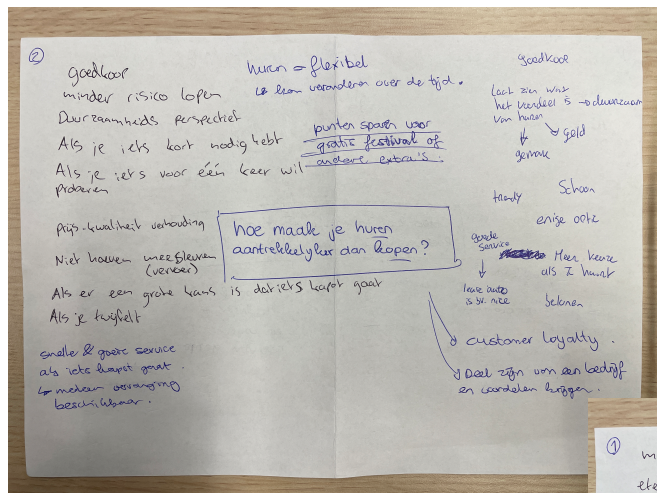 ②
goedkoop
minder risico lopen
Duurzaamheids perspectief
Als je iets kort nodig hebt
Als je iets voor één keer wil
proberen
Prijs-kwaliteit verhouding
Niet hoeven meesleuren
(vervoer)
Als er een grote kans is dat iets kapot gaat
Als je twijfelt
sneller & goere service
als iets kapot gaat.
↳ meteen vervanging
beschikbaar.
huren = flexibel
↳ kan veranderen over de tijd.
punten sparen voor
gratis festival of
andere extra's.
hoe maak je huren
aantrekkelijker dan kopen?
goedkoop
Laat zien wat
het voordeel is → duurzaam
van huren
↘ geld
gemak
trendy
Schoon
enige optie
goede
service
Meer keuze
als je huurt
lease auto
is bv. nice
belonen
customer loyalty.
Deel zijn van een bedrijf
en voordelen krijgen.
①
m
ete